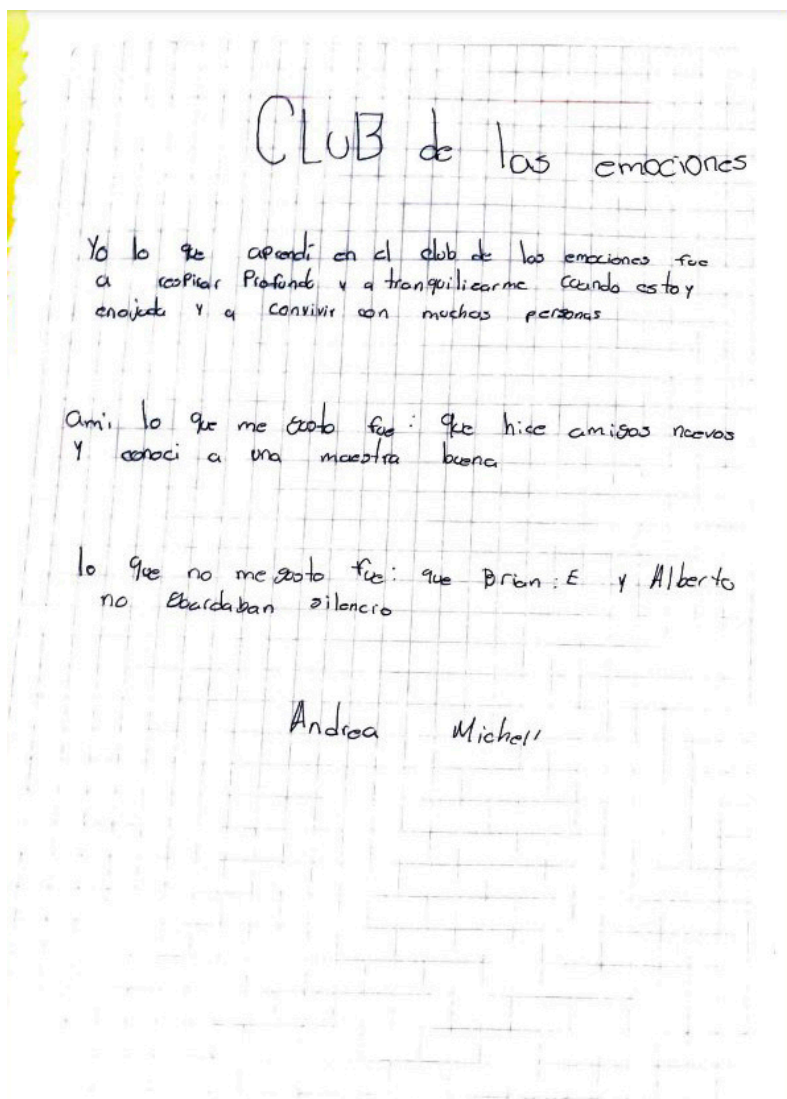 CLUB de las emociones
Yo lo que aprendi en el club de las emociones fue
a respirar Profundo y a tranquilizarme cuando estoy
enojada y a convivir con muchas personas
ami lo que me gusto fue: que hice amigos nuevos
Y conoci a una maestra buena
lo que no me gusto fue: que Brian:E y Alberto
no Guardaban silencio
Andrea Michell